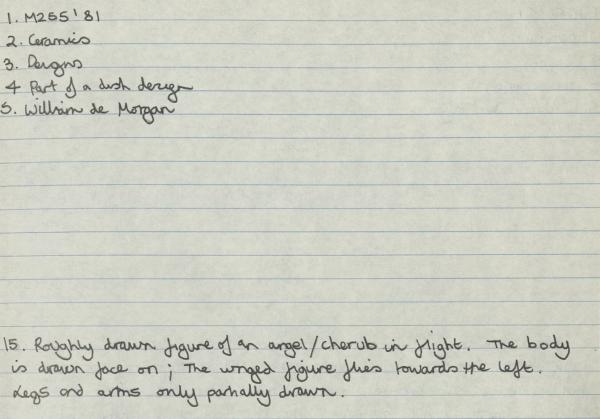 1. M255'81
2. Ceramics
3. Designs
4 Part of a dish design
5. William de Morgan
15. Roughly drawn figure of an angel/cherub in flight. The body
is drawn face on; The winged figure flies towards the left.
Legs and arms only partially drawn.